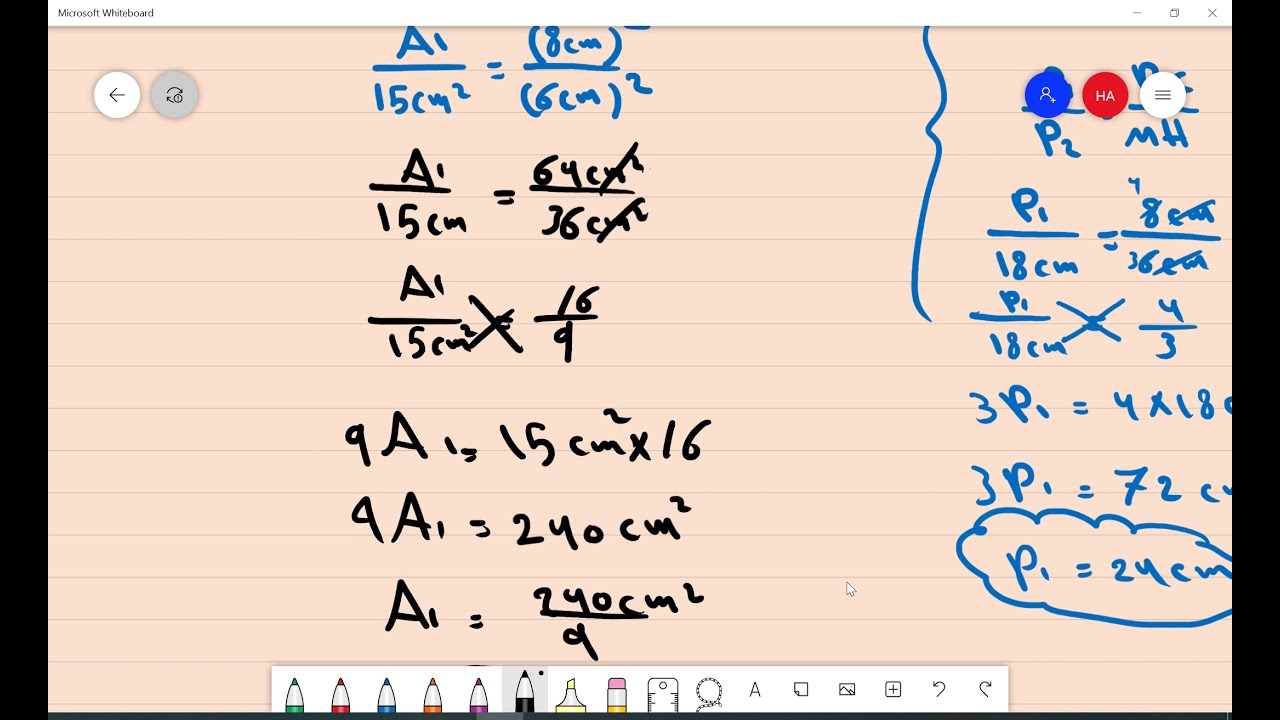 Microsoft Whiteboard
A₁/15cm² = (8cm)²/(6cm)²
A₁/15cm = 64cm²/36cm²
A₁/15cm² = 16/9
9A₁ = 15cm² × 16
9A₁ = 240cm²
A₁ = 240cm²/9
HA
P₂ mH
P₁/18cm = ⁴8cm/36cm
P₁/18cm 4/3
3P₁ = 4×18
3P₁ = 72 c
P₁ = 24cm
A